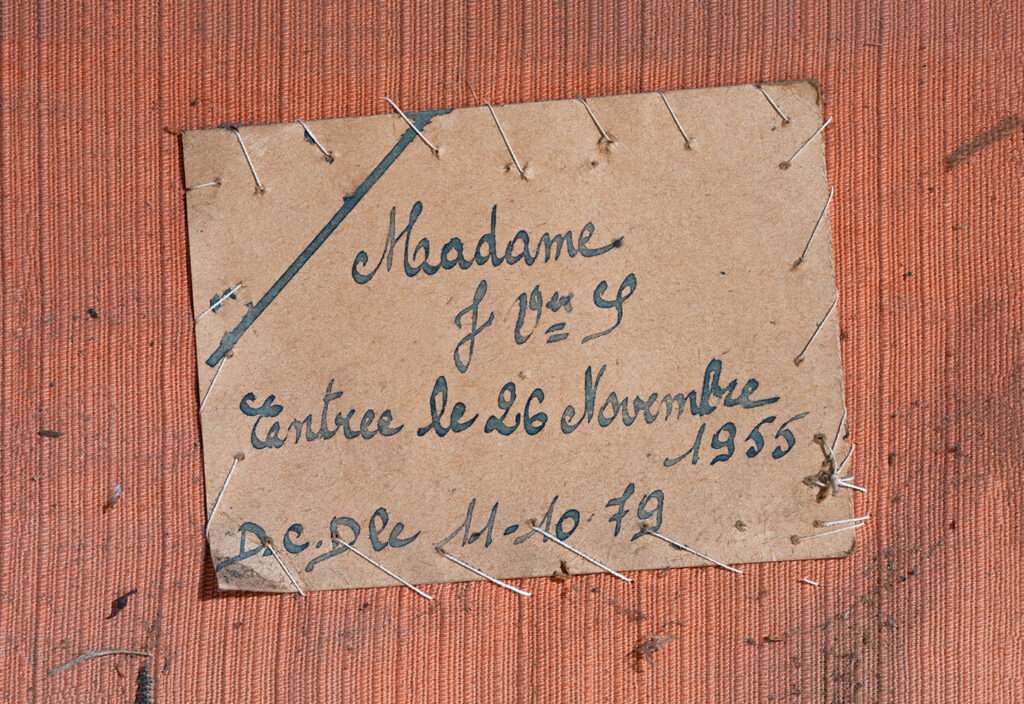 Madame
J Vve S
Entree le 26 Novembre
1955
D.C.D le 11-10-79